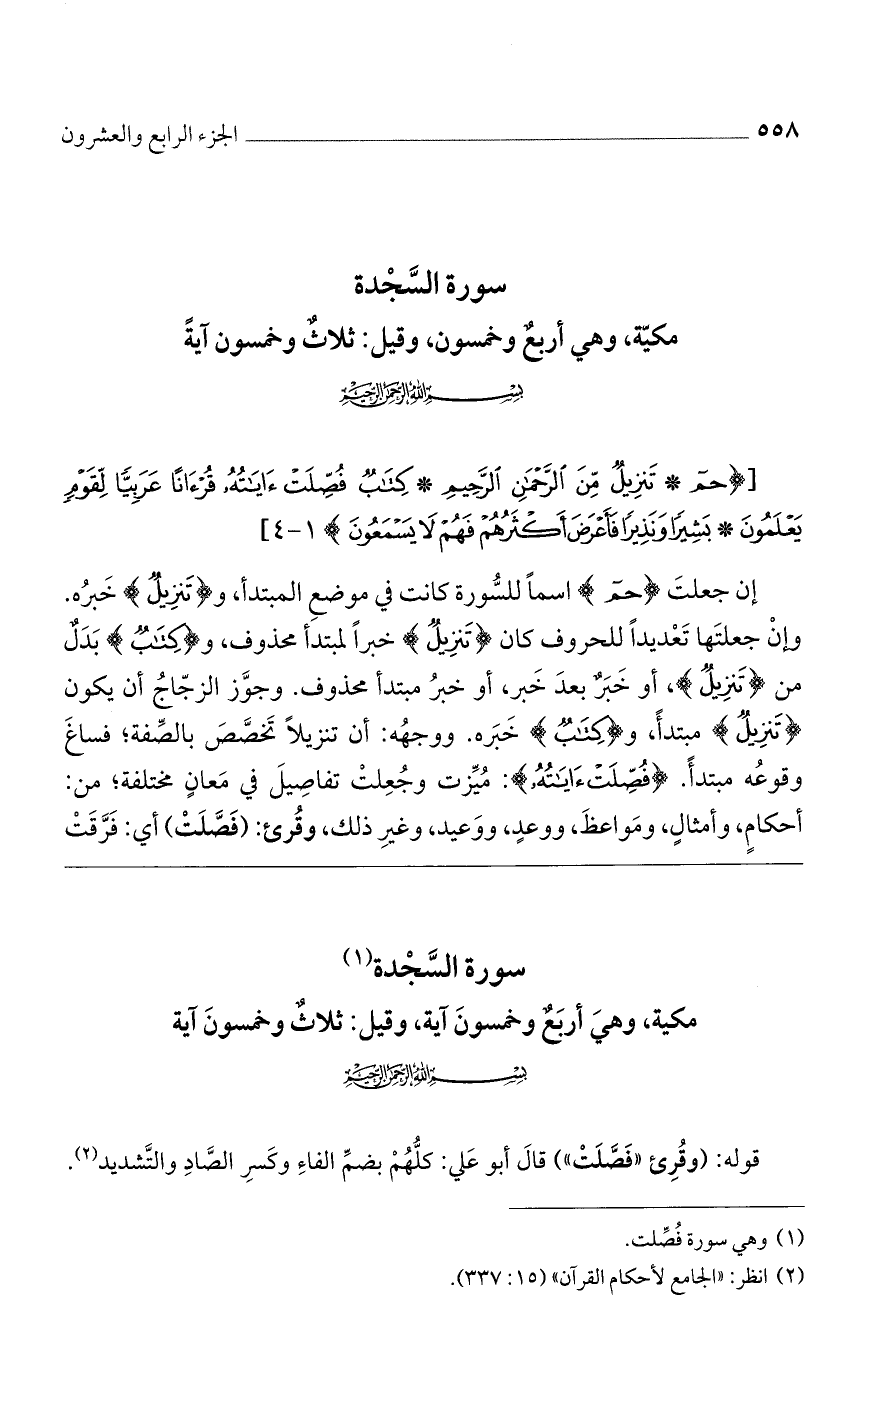 ٥٥٨ الجزء الرابع والعشرون
سورة السَّجْدة
مكيّة، وهي أربعٌ وخمسون، وقيل: ثلاثٌ وخمسون آيةً
بِسْمِ اللَّهِ الرَّحْمَٰنِ الرَّحِيمِ
[﴿حمٓ * تَنزِيلٌ مِّنَ ٱلرَّحْمَٰنِ ٱلرَّحِيمِ * كِتَٰبٌ فُصِّلَتْ ءَايَٰتُهُۥ قُرْءَانًا عَرَبِيًّا لِّقَوْمٍ
يَعْلَمُونَ * بَشِيرًا وَنَذِيرًا فَأَعْرَضَ أَكْثَرُهُمْ فَهُمْ لَا يَسْمَعُونَ ﴾ ١-٤]
إن جعلتَ ﴿حمٓ ﴾ اسماً للسُّورة كانت في موضعِ المبتدأ، و﴿تَنزِيلٌ ﴾ خَبرُه.
وإنْ جعلتَها تَعْديداً للحروف كان ﴿تَنزِيلٌ ﴾ خبراً لمبتدأ محذوف، و﴿كِتَٰبٌ ﴾ بَدَلٌ
من ﴿تَنزِيلٌ ﴾، أو خَبَرٌ بعدَ خَبر، أو خبرُ مبتدأ محذوف. وجوَّز الزجّاجُ أن يكون
﴿تَنزِيلٌ ﴾ مبتدأً، و﴿كِتَٰبٌ ﴾ خَبَره. ووجهُه: أن تنزيلاً تَخصَّصَ بالصِّفة؛ فساغَ
وقوعُه مبتدأً. ﴿فُصِّلَتْ ءَايَٰتُهُۥ﴾: مُيِّزت وجُعِلتْ تفاصِيلَ في مَعانٍ مختلفة؛ من:
أحكامٍ، وأمثالٍ، ومَواعظَ، ووعدٍ، ووَعيد، وغيرِ ذلك، وقُرئ: (فَصَّلَتْ) أي: فَرَّقَتْ
سورة السَّجْدة(١)
مكية، وهيَ أربَعٌ وخمسونَ آية، وقيل: ثلاثٌ وخمسونَ آية
بِسْمِ اللَّهِ الرَّحْمَٰنِ الرَّحِيمِ
قوله: (وقُرِئ «فَصَّلَتْ») قالَ أبو عَلي: كلُّهُمْ بضمِّ الفاءِ وكَسرِ الصَّادِ والتَّشديد(٢).
(١) وهي سورة فُصِّلت.
(٢) انظر: «الجامع لأحكام القرآن» (١٥: ٣٣٧).